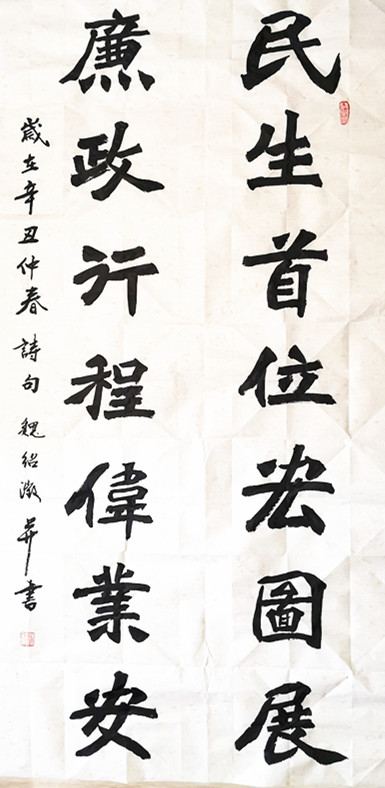 民生首位宏圖展
廉政行程偉業安
歲在辛丑仲春 詩句 魏紹激并書